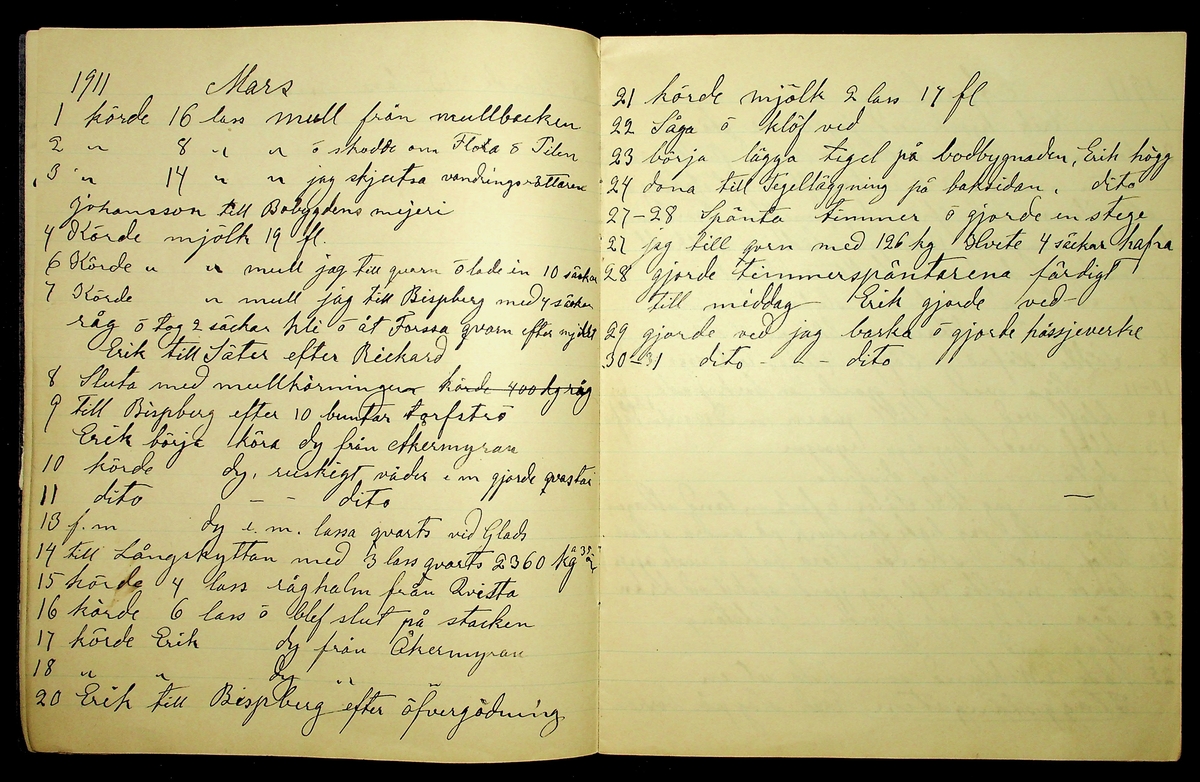 1911 Mars
1 körde 16 lass mull från mullbacken
2 " 8 " " ö skodde om Flora ö Pilen
3 " 14 " " jag skjutsa vandringsrättaren
Johansson till Bobygdens mejeri
4 Körde mjölk 19 fl.
6 Körde " " mull jag till qvarn ö lade in 10 säckar
7 Körde " mull jag till Bispberg med 4 säckar
råg ö tog 2 säckar kli ö åt Forssa qvarn efter mjölet
Erik till Säter efter Rickard
8 Sluta med mullkörningen körde 400 kg råg
9 till Bispberg efter 10 buntar torfströ
Erik börja köra dy från Åkermyran
10 körde dy, ruskigt väder e m gjorde qvastar
11 dito - - dito
13 f.m dy e. m. lassa qvarts vid Glads
14 till Långshyttan med 3 lass qvarts 2360 kg
15 körde 4 lass råghalm från Qvista
16 körde 6 lass ö blef slut på stacken
17 körde Erik dy från Åkermyran
18 " " dy "
20 Erik till Bispberg efter öfvergödning
21 körde mjölk 2 lass 17 fl
22 Såga ö klöf ved
23 börja lägga tegel på bodbygnaden, Erik högg
24 dona till Tegelläggning på baksidan, dito
27-28 Spänta timmer ö gjorde en stege
27 jag till qvrn med 126 kg Hvete 4 säckar hafra
28 gjorde timmerspäntarena färdigt
till middag Erik gjorde ved-
29 gjorde ved jag barka ö gjorde hässjevirke
30-31 dito - - dito